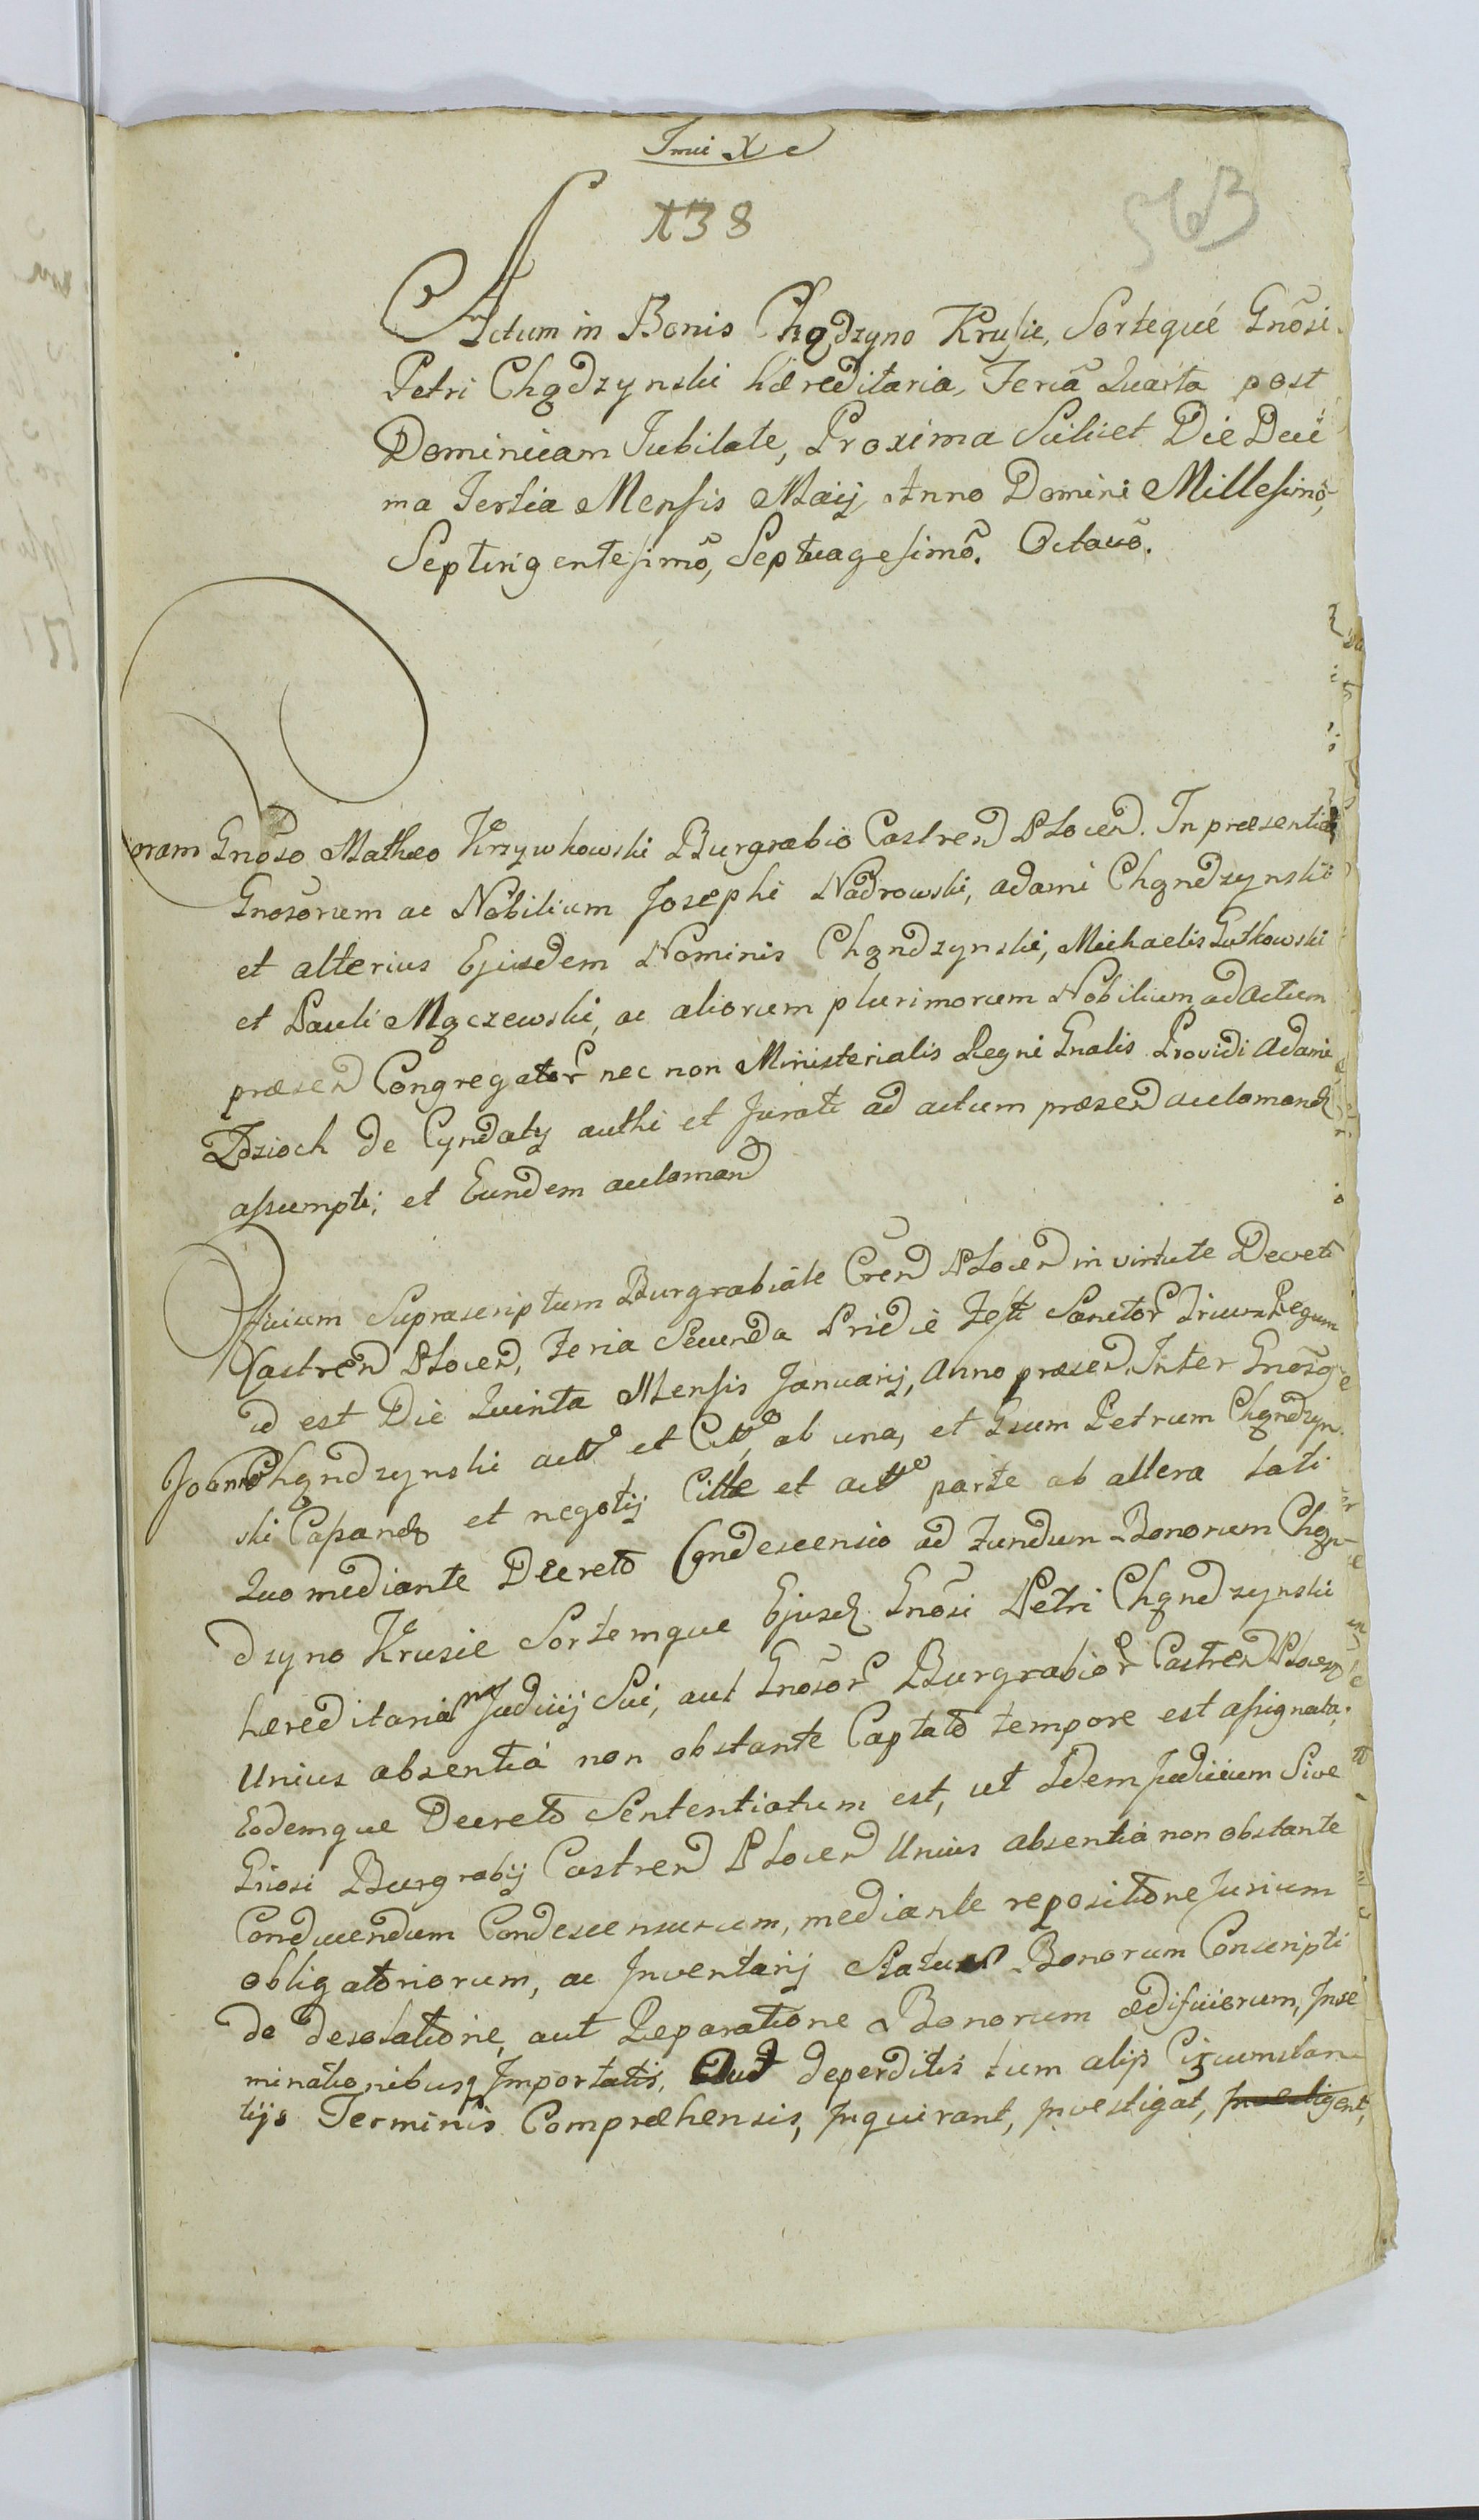 138
563
Actum in Bonis Chądzyno Krusie, Sorteque Gnõsi
Petri Chądzynski hæreditaria, Feria Quarta post
Dominicam Jubilate, Proxima Scilicet Die Deci
ma Tertia Mensis Maij Anno Domini Millesimõ,
Septingentesimõ, Septuagesimõ. Octavõ.
Coram Gnõso Matheo Krzywkowski Burgrabio Castren Plocen. In præsentia
Gnosorum ac Nobilium Josephi Nadrowski, adami Chąndzynski
et alterius Ejusdem Nominis Chąndzynski, Michaelis Gutkowski
et Pauli Mączewski, ac aliorum plurimorum Nobilium ad actum
præsen Congregator nec non Ministerialis Regni Gnalis Providi Adami
Dzioch de Cyndaty authi et Jurati ad actum præsen acclamand
assumpti; et Eundem acclamand
Officium Suprascriptum Burgrabiale Cren Plocen in virtute Decreti
Castren Plocen, Feria Secunda Pridie Festi Sanctor Trium Regum
id est Die Quinta Mensis Januarij, Anno præsen Inter Gnosõs
Joannem Chąndzynski actt et Citt, ab una, et Gsum Petrum Chąndzyn
ski Capaneos et negotij Citte et actt parte ab altera lati
Quo mediante Decretõ Condescensio ad Fundum Bonorum Chąn
dzyno Krusie Sortemque Ejusd Gnõsi Petri Chąndzynski
hæreditariam Judicij Sui, aut Gnosor Burgrabior Castren Plocen
Unius absentia non obstante Captatõ tempore est assignata,
Eodemque Decretõ Sententiatum est, ut Idem Judicium Sive
Gnosi Burgrabij Castren Plocen Unius absentia non obstante
Conducendum Condescensurum, mediante repositione Jurium
obligatoriorum, ac Inventarij Status Bonorum Conscripti
de desolatione, aut Reparatione Bonorum ædificiorum, Inse
minationibusq Importatis, Aut deperditis tum alijs Circumstan
tijs Terminis Compræhensis, Inquirant, Investigat, Investigent,